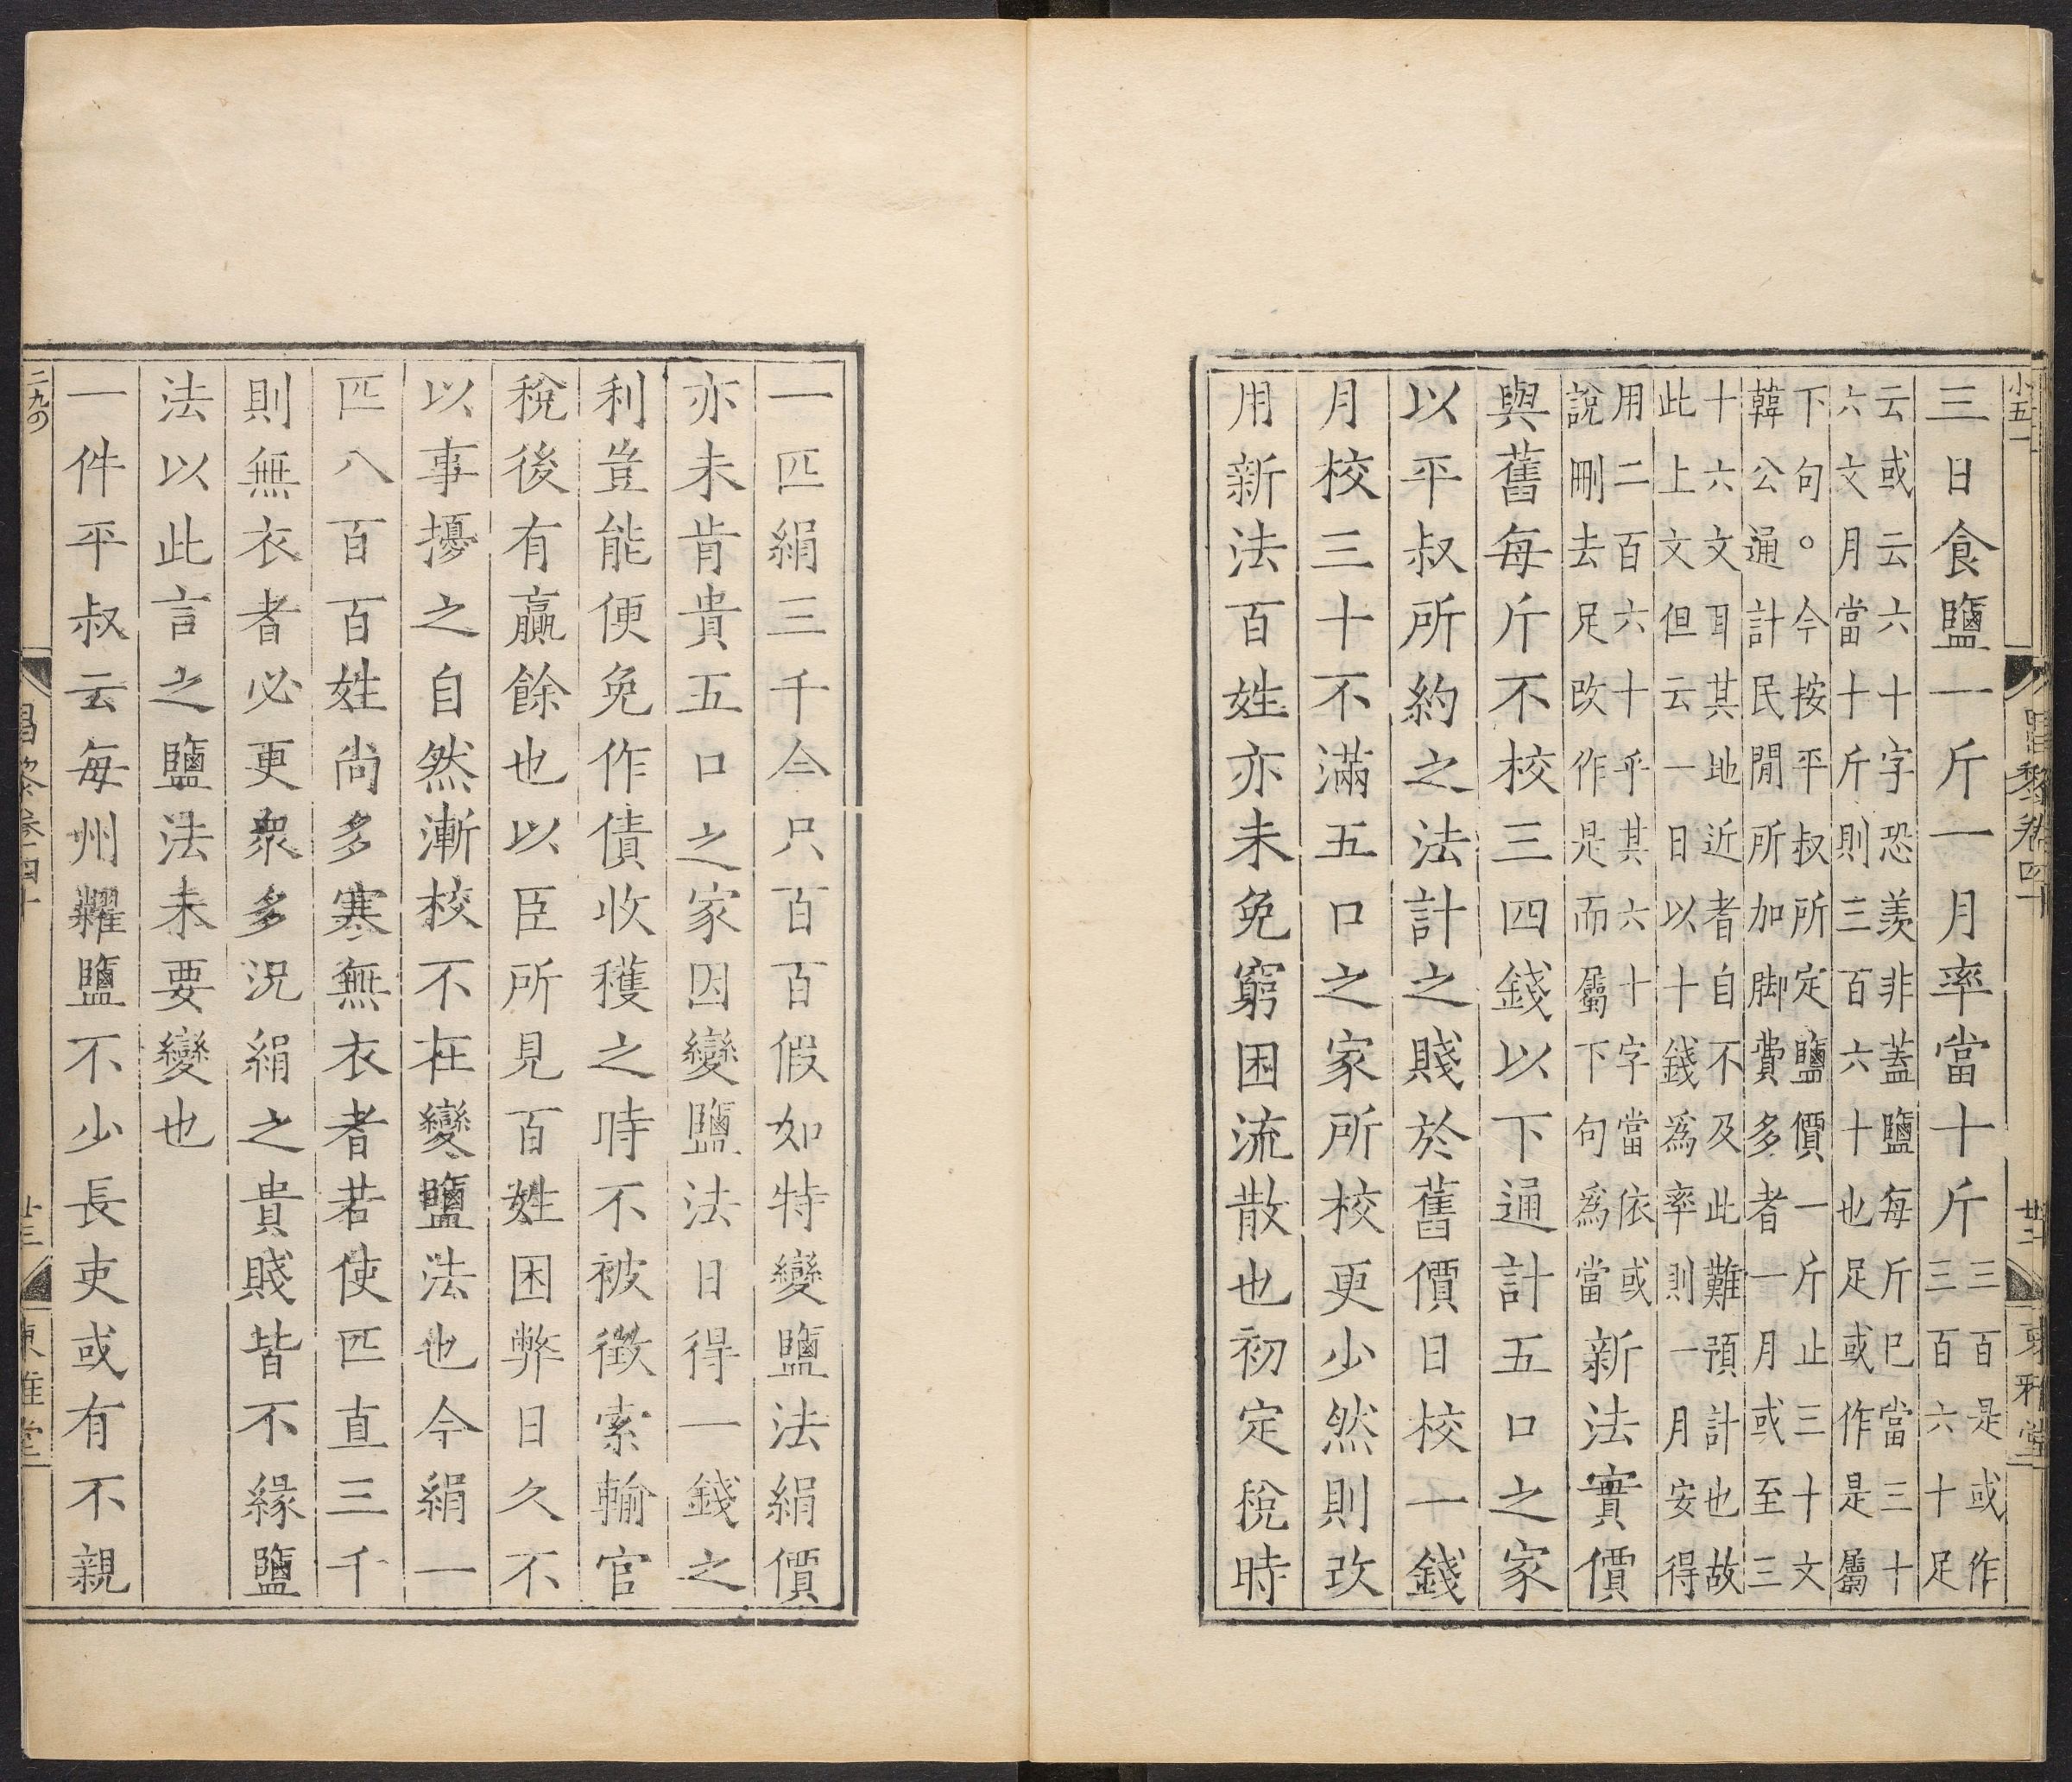 小五一
昌黎卷四十
廿二
東雅堂
三日食鹽一斤一月率當十斤
三百是或作
三百六十足
云或云六十字恐羨非蓋鹽每斤巳當三十
六文月當十斤則三百六十也足或作是屬
下句。今按平叔所定鹽價一斤止三十文
韓公通計民閒所加脚費多者一月或至三
十六文耳其地近者自不及此難預計也故
此上文但云一日以十錢爲率則一月安得
用二百六十乎其六十字當依或
說刪去足改作是而屬下句爲當
新法實價
與舊每斤不校三四錢以下通計五口之家
以平叔所約之法計之賤於舊價日校一錢
月校三十不滿五口之家所校更少然則改
用新法百姓亦未免窮困流散也初定稅時
一匹絹三千今只百百假如特變鹽法絹價
亦未肯貴五口之家因變鹽法日得一錢之
利豈能便免作債收穫之時不被徵索輸官
稅後有贏餘也以臣所見百姓困弊日久不
以事擾之自然漸校不在變鹽法也今絹一
匹八百百姓尚多寒無衣者若使匹直三千
則無衣者必更衆多況絹之貴賤皆不緣鹽
法以此言之鹽法未要變也
一件平叔云每州糶鹽不少長吏或有不親
二九
昌黎卷四十
廿三
東雅堂